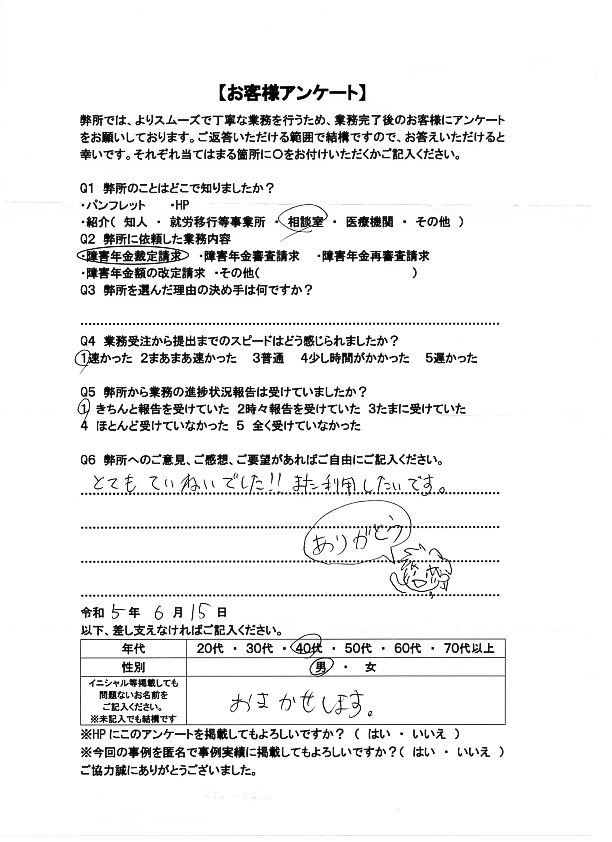 【お客様アンケート】
弊所では、よりスムーズで丁寧な業務を行うため、業務完了後のお客様にアンケート
をお願いしております。ご返答いただける範囲で結構ですので、お答えいただけると
幸いです。それぞれ当てはまる箇所に〇をお付けいただくかご記入ください。
Q1 弊所のことはどこで知りましたか？
・パンフレット ・HP
・紹介（ 知人 ・ 就労移行等事業所 ・ 相談室 ・ 医療機関 ・ その他 ）
Q2 弊所に依頼した業務内容
・障害年金裁定請求 ・障害年金審査請求 ・障害年金再審査請求
・障害年金額の改定請求 ・その他（ ）
Q3 弊所を選んだ理由の決め手は何ですか？
Q4 業務受注から提出までのスピードはどう感じられましたか？
1速かった 2まあまあ速かった 3普通 4少し時間がかかった 5遅かった
Q5 弊所から業務の進捗状況報告は受けていましたか？
1 きちんと報告を受けていた 2時々報告を受けていた 3たまに受けていた
4 ほとんど受けていなかった 5 全く受けていなかった
Q6 弊所へのご意見、ご感想、ご要望があればご自由にご記入ください。
とても ていねいでした!! また利用したいです。
ありがとう
令和 5 年 6 月 15 日
以下、差し支えなければご記入ください。
年代 20代 ・ 30代 ・ 40代 ・ 50代 ・ 60代 ・ 70代以上
性別 男 ・ 女
イニシャル等掲載しても
問題ないお名前を
ご記入ください。
※未記入でも結構です
おまかせします。
※HPにこのアンケートを掲載してもよろしいですか？（ はい ・ いいえ ）
※今回の事例を匿名で事例実績に掲載してもよろしいですか？（ はい ・ いいえ ）
ご協力誠にありがとうございました。